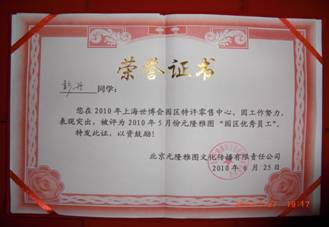 荣誉证书
同学:
您在2010年上海世博会园区特许零售中心,因工作努力,
表现突出,被评为2010年5月份元隆雅图"园区优秀员工",
特发此证,以资鼓励!
北京元隆雅图文化传播有限责任公司
2010年6月25日